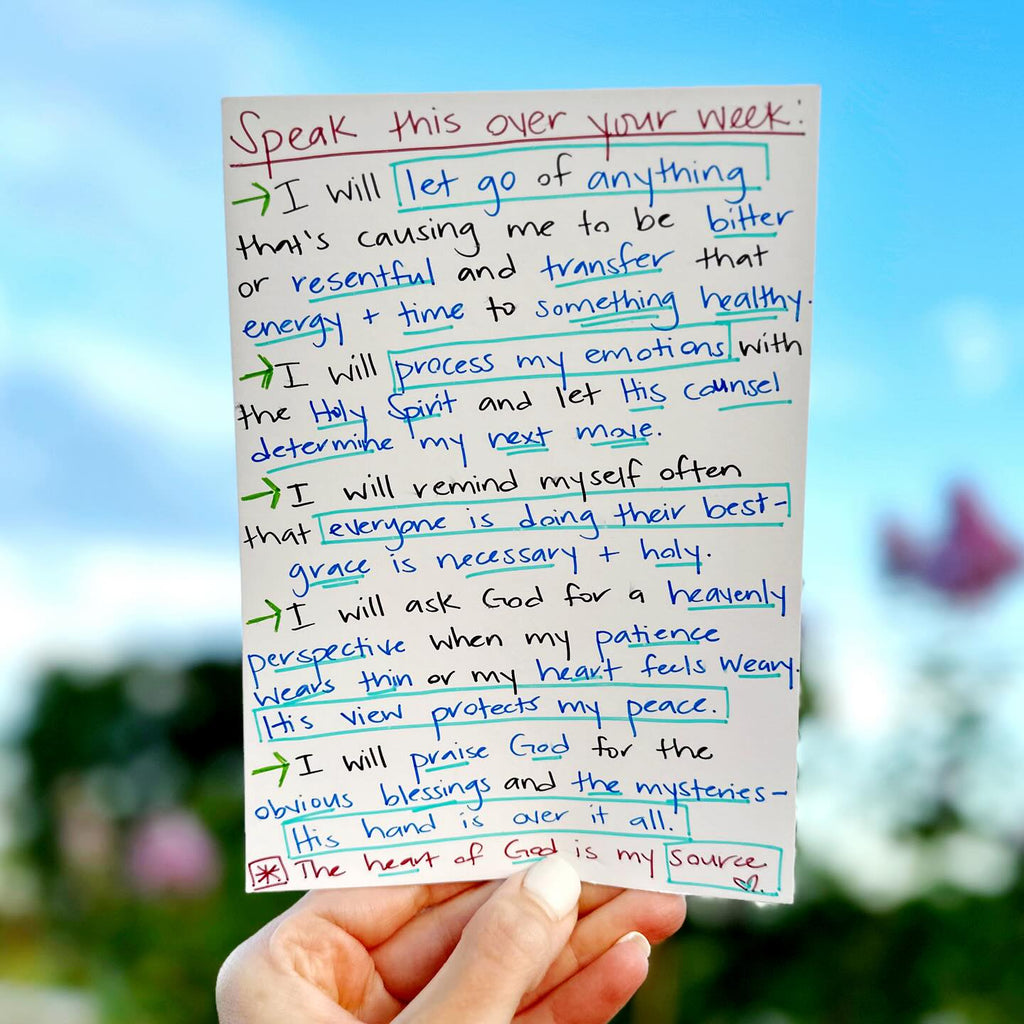 Speak this over your week:
→I will let go of anything
that's causing me to be bitter
or resentful and transfer that
energy + time to something healthy.
→I will process my emotions with
the Holy Spirit and let His counsel
determine my next move.
→I will remind myself often
that everyone is doing their best-
grace is necessary + holy.
→I will ask God for a heavenly
perspective when my patience
wears thin or my heart feels weary.
His view protects my peace.
→I will praise God for the
obvious blessings and the mysteries-
His hand is over it all.
* The heart of God is my source